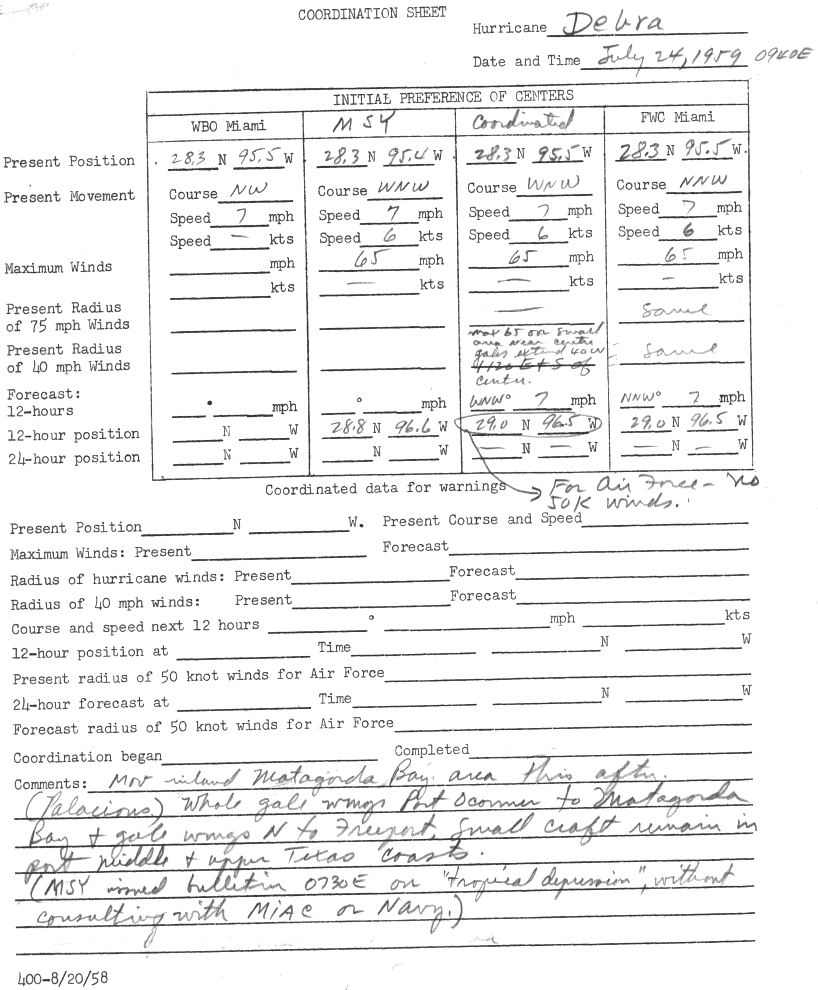 COORDINATION SHEET
Hurricane Debra
Date and Time July 24, 1959 0940E
INITIAL PREFERENCE OF CENTERS
WBO Miami MSY Coordinated FWC Miami
Present Position 28.3 N 95.5 W 28.3 N 95.4 W 28.3 N 95.5 W 28.3 N 95.5 W.
Present Movement Course NW Course WNW Course WNW Course NNW
Speed 7 mph Speed 7 mph Speed 7 mph Speed 7 mph
Speed — kts Speed 6 kts Speed 6 kts Speed 6 kts
Maximum Winds mph 65 mph 65 mph 65 mph
kts — kts — kts — kts
Present Radius — Same
of 75 mph Winds
max 65 over small
area near centre
Present Radius gales extend 40 W Same
of 40 mph Winds 4/120 E + S of
center.
Forecast:
12-hours ° mph ° mph WNW° 7 mph NNW° 7 mph
12-hour position N W 28.8 N 96.6 W 29.0 N 96.5 W 29.0 N 96.5 W
24-hour position N W N W — N — W — N — W
Coordinated data for warnings For Air Force - no
50K winds.
Present Position N W. Present Course and Speed
Maximum Winds: Present Forecast
Radius of hurricane winds: Present Forecast
Radius of 40 mph winds: Present Forecast
Course and speed next 12 hours ° mph kts
12-hour position at Time N W
Present radius of 50 knot winds for Air Force
24-hour forecast at Time N W
Forecast radius of 50 knot winds for Air Force
Coordination began Completed
Comments: Mov inland Matagorda Bay area this aftn.
(Palacious) Whole gale wrngs Port Oconner to Matagorda
Bay + gale wrngs N to Freeport, small craft remain in
port middle + upper Texas coasts.
(MSY issued bulletin 0730E on "tropical depression", without
consulting with MIAC or Navy.)
400-8/20/58